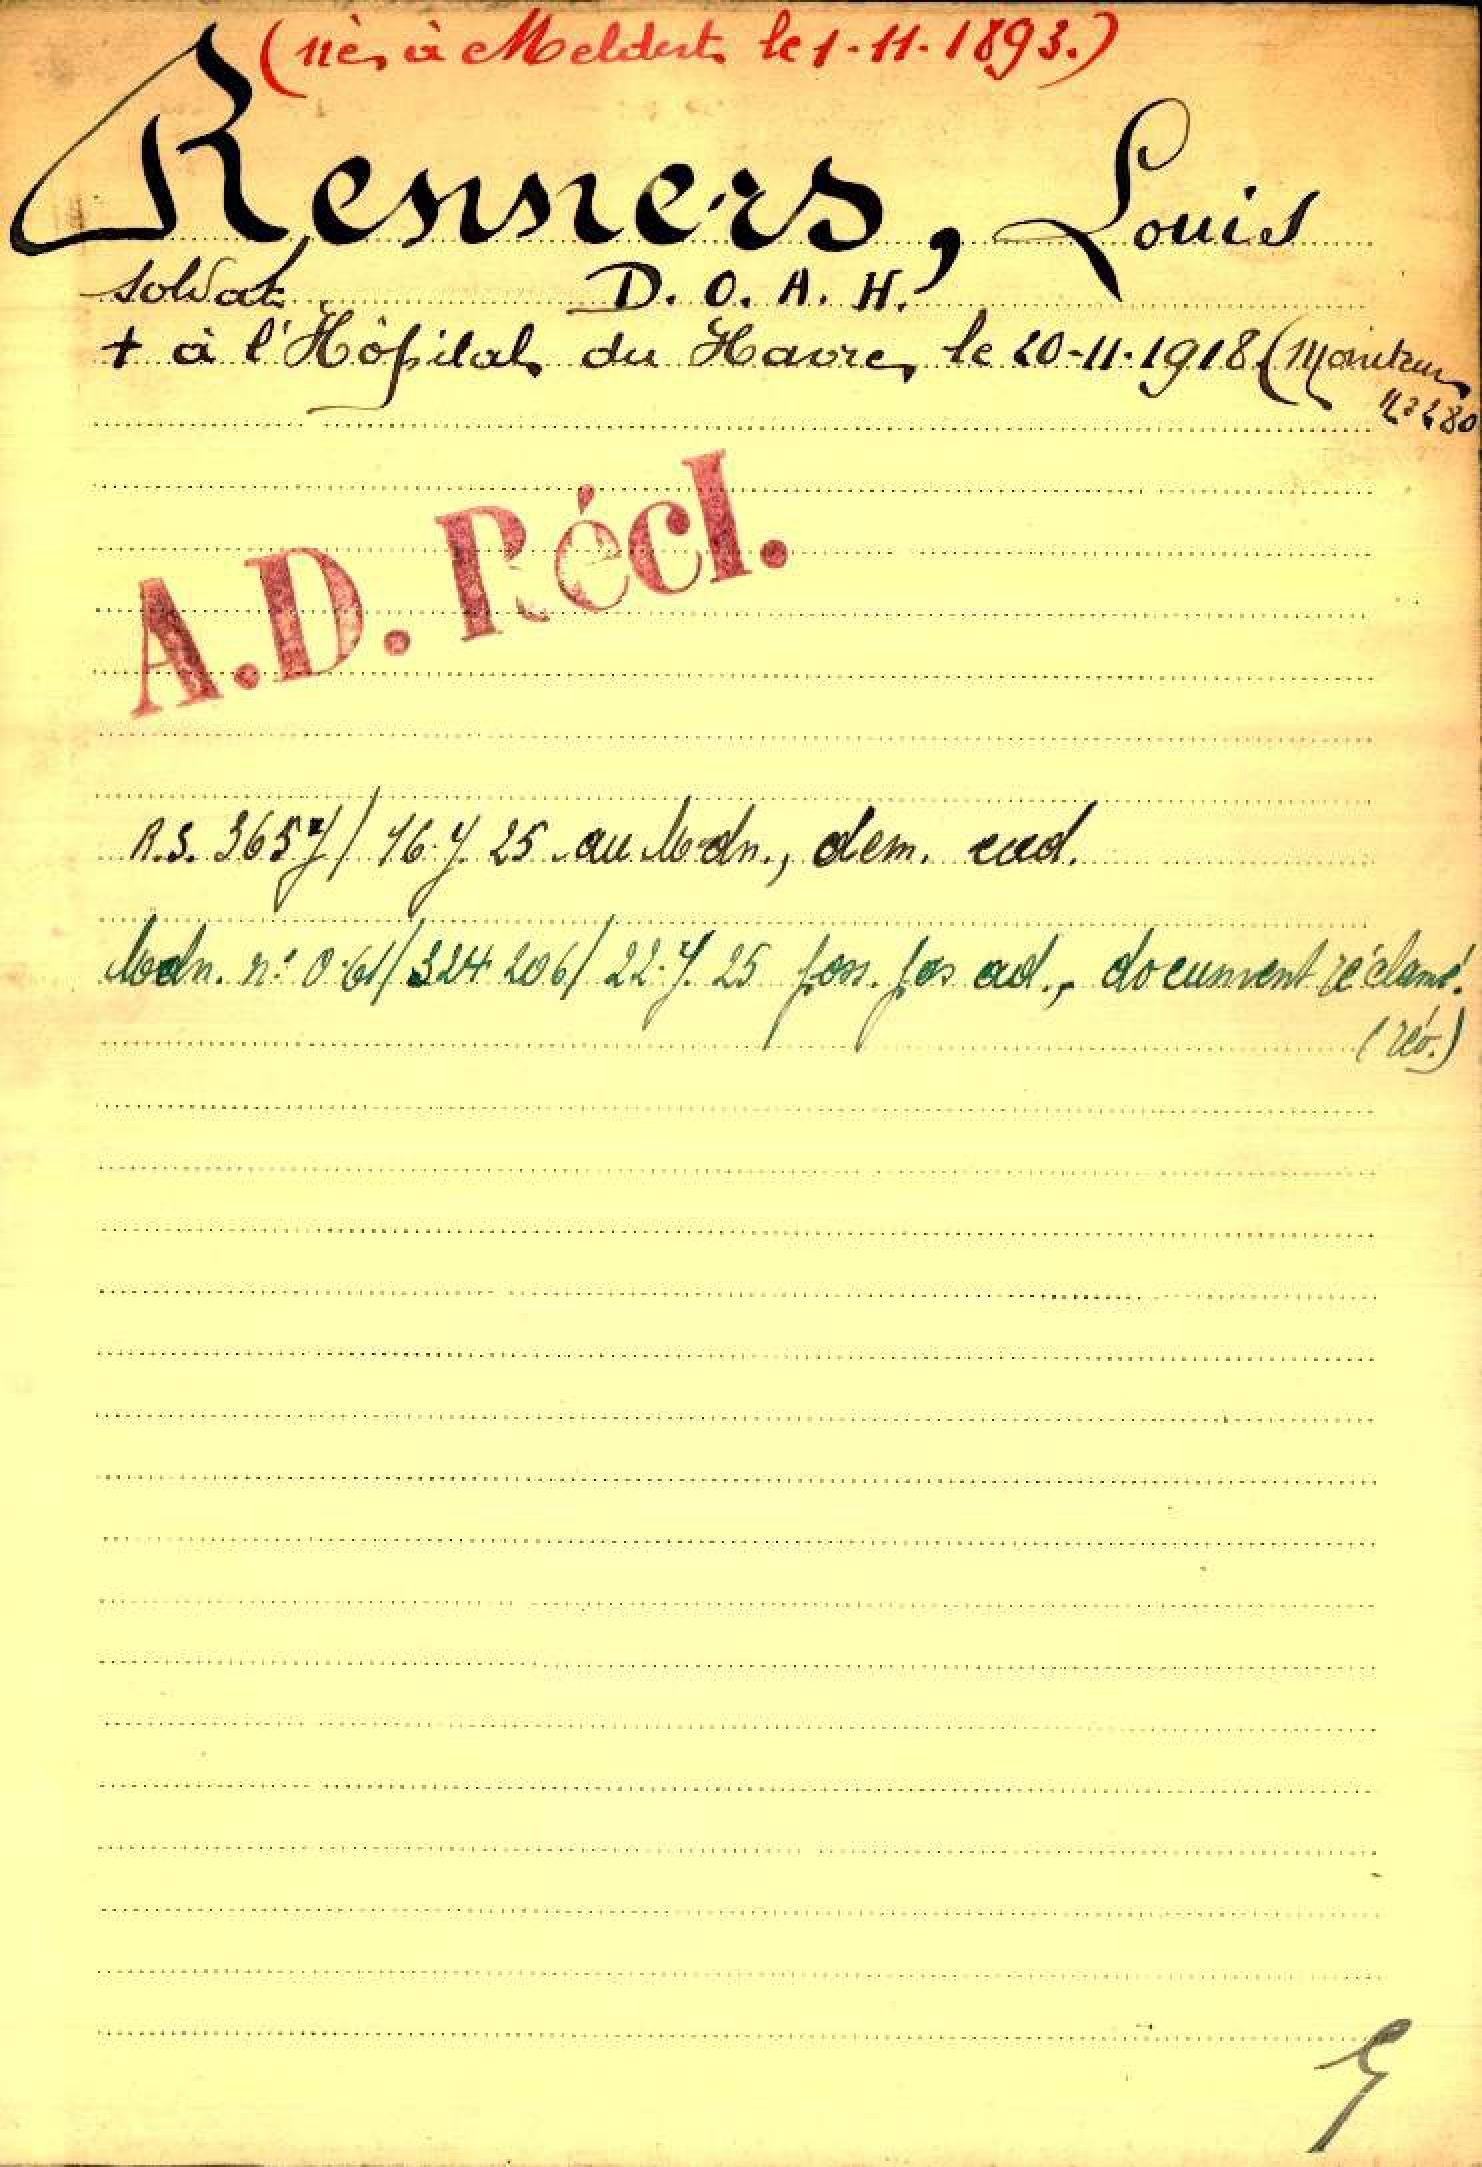 (né à Meldert le 1-11-1893.)
Renners, Louis
Soldat, D.O.A.H.
+ à l'Hôpital du Havre, le 20-11-1918 (Moniteur
A.D. Récl.
R.S. 3657/16.7.25 au Mdn., dem. cad.
Mdn. n° 0.61/324 206/22.7.25 poss. pas ad., document réclamé.
(rév.)